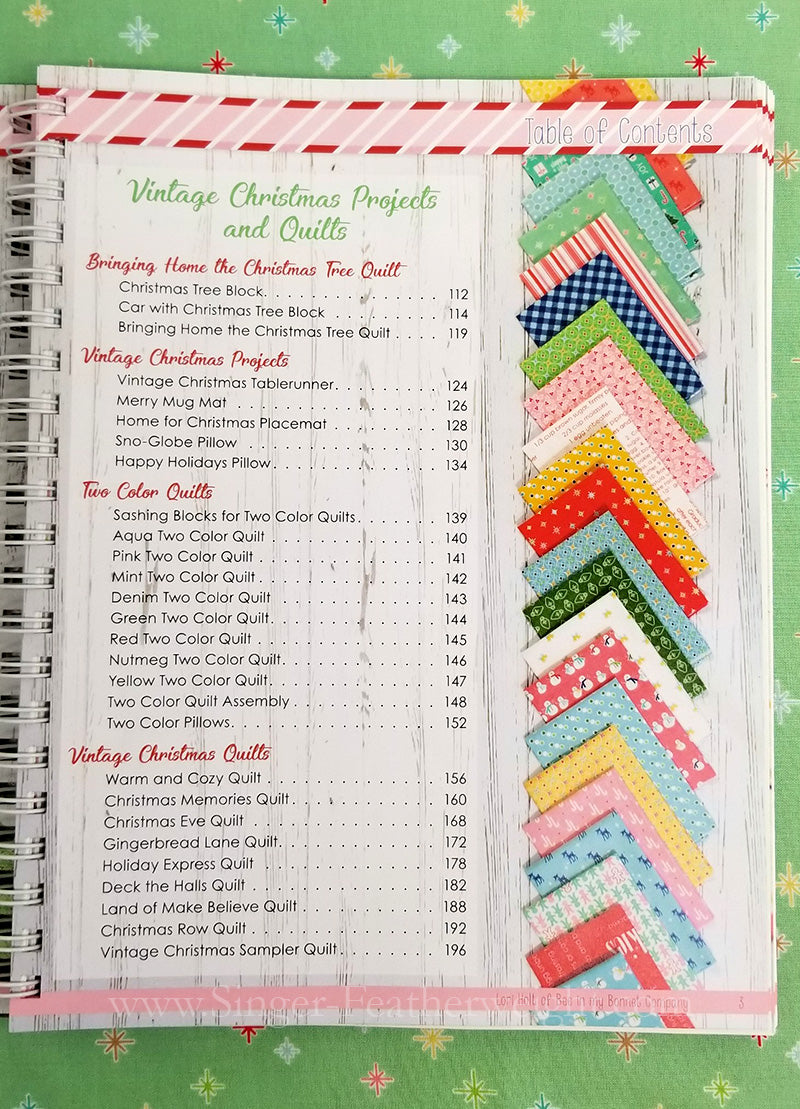 Table of Contents
Vintage Christmas Projects
and Quilts
Bringing Home the Christmas Tree Quilt
Christmas Tree Block. . . . . . . . . . . . . . . . 112
Car with Christmas Tree Block . . . . . . . . . 114
Bringing Home the Christmas Tree Quilt . . . . 119
Vintage Christmas Projects
Vintage Christmas Tablerunner. . . . . . . . . 124
Merry Mug Mat . . . . . . . . . . . . . . . . . 126
Home for Christmas Placemat . . . . . . . . . 128
Sno-Globe Pillow . . . . . . . . . . . . . . . . 130
Happy Holidays Pillow. . . . . . . . . . . . . . 134
Two Color Quilts
Sashing Blocks for Two Color Quilts. . . . . . . 139
Aqua Two Color Quilt . . . . . . . . . . . . . . 140
Pink Two Color Quilt . . . . . . . . . . . . . . . 141
Mint Two Color Quilt . . . . . . . . . . . . . . . 142
Denim Two Color Quilt. . . . . . . . . . . . . . 143
Green Two Color Quilt. . . . . . . . . . . . . . 144
Red Two Color Quilt . . . . . . . . . . . . . . . 145
Nutmeg Two Color Quilt. . . . . . . . . . . . . 146
Yellow Two Color Quilt. . . . . . . . . . . . . . 147
Two Color Quilt Assembly . . . . . . . . . . . . 148
Two Color Pillows. . . . . . . . . . . . . . . . . 152
Vintage Christmas Quilts
Warm and Cozy Quilt . . . . . . . . . . . . . . 156
Christmas Memories Quilt. . . . . . . . . . . . 160
Christmas Eve Quilt . . . . . . . . . . . . . . . 168
Gingerbread Lane Quilt. . . . . . . . . . . . . 172
Holiday Express Quilt . . . . . . . . . . . . . . 178
Deck the Halls Quilt . . . . . . . . . . . . . . . 182
Land of Make Believe Quilt . . . . . . . . . . . 188
Christmas Row Quilt . . . . . . . . . . . . . . . 192
Vintage Christmas Sampler Quilt. . . . . . . . . 196
1/3 cup brown sugar, firmly
2/3 cup molasses
1 egg unbeaten
www.Singer-Featherw
Lori Holt of Bee in my Bonnet Company 3